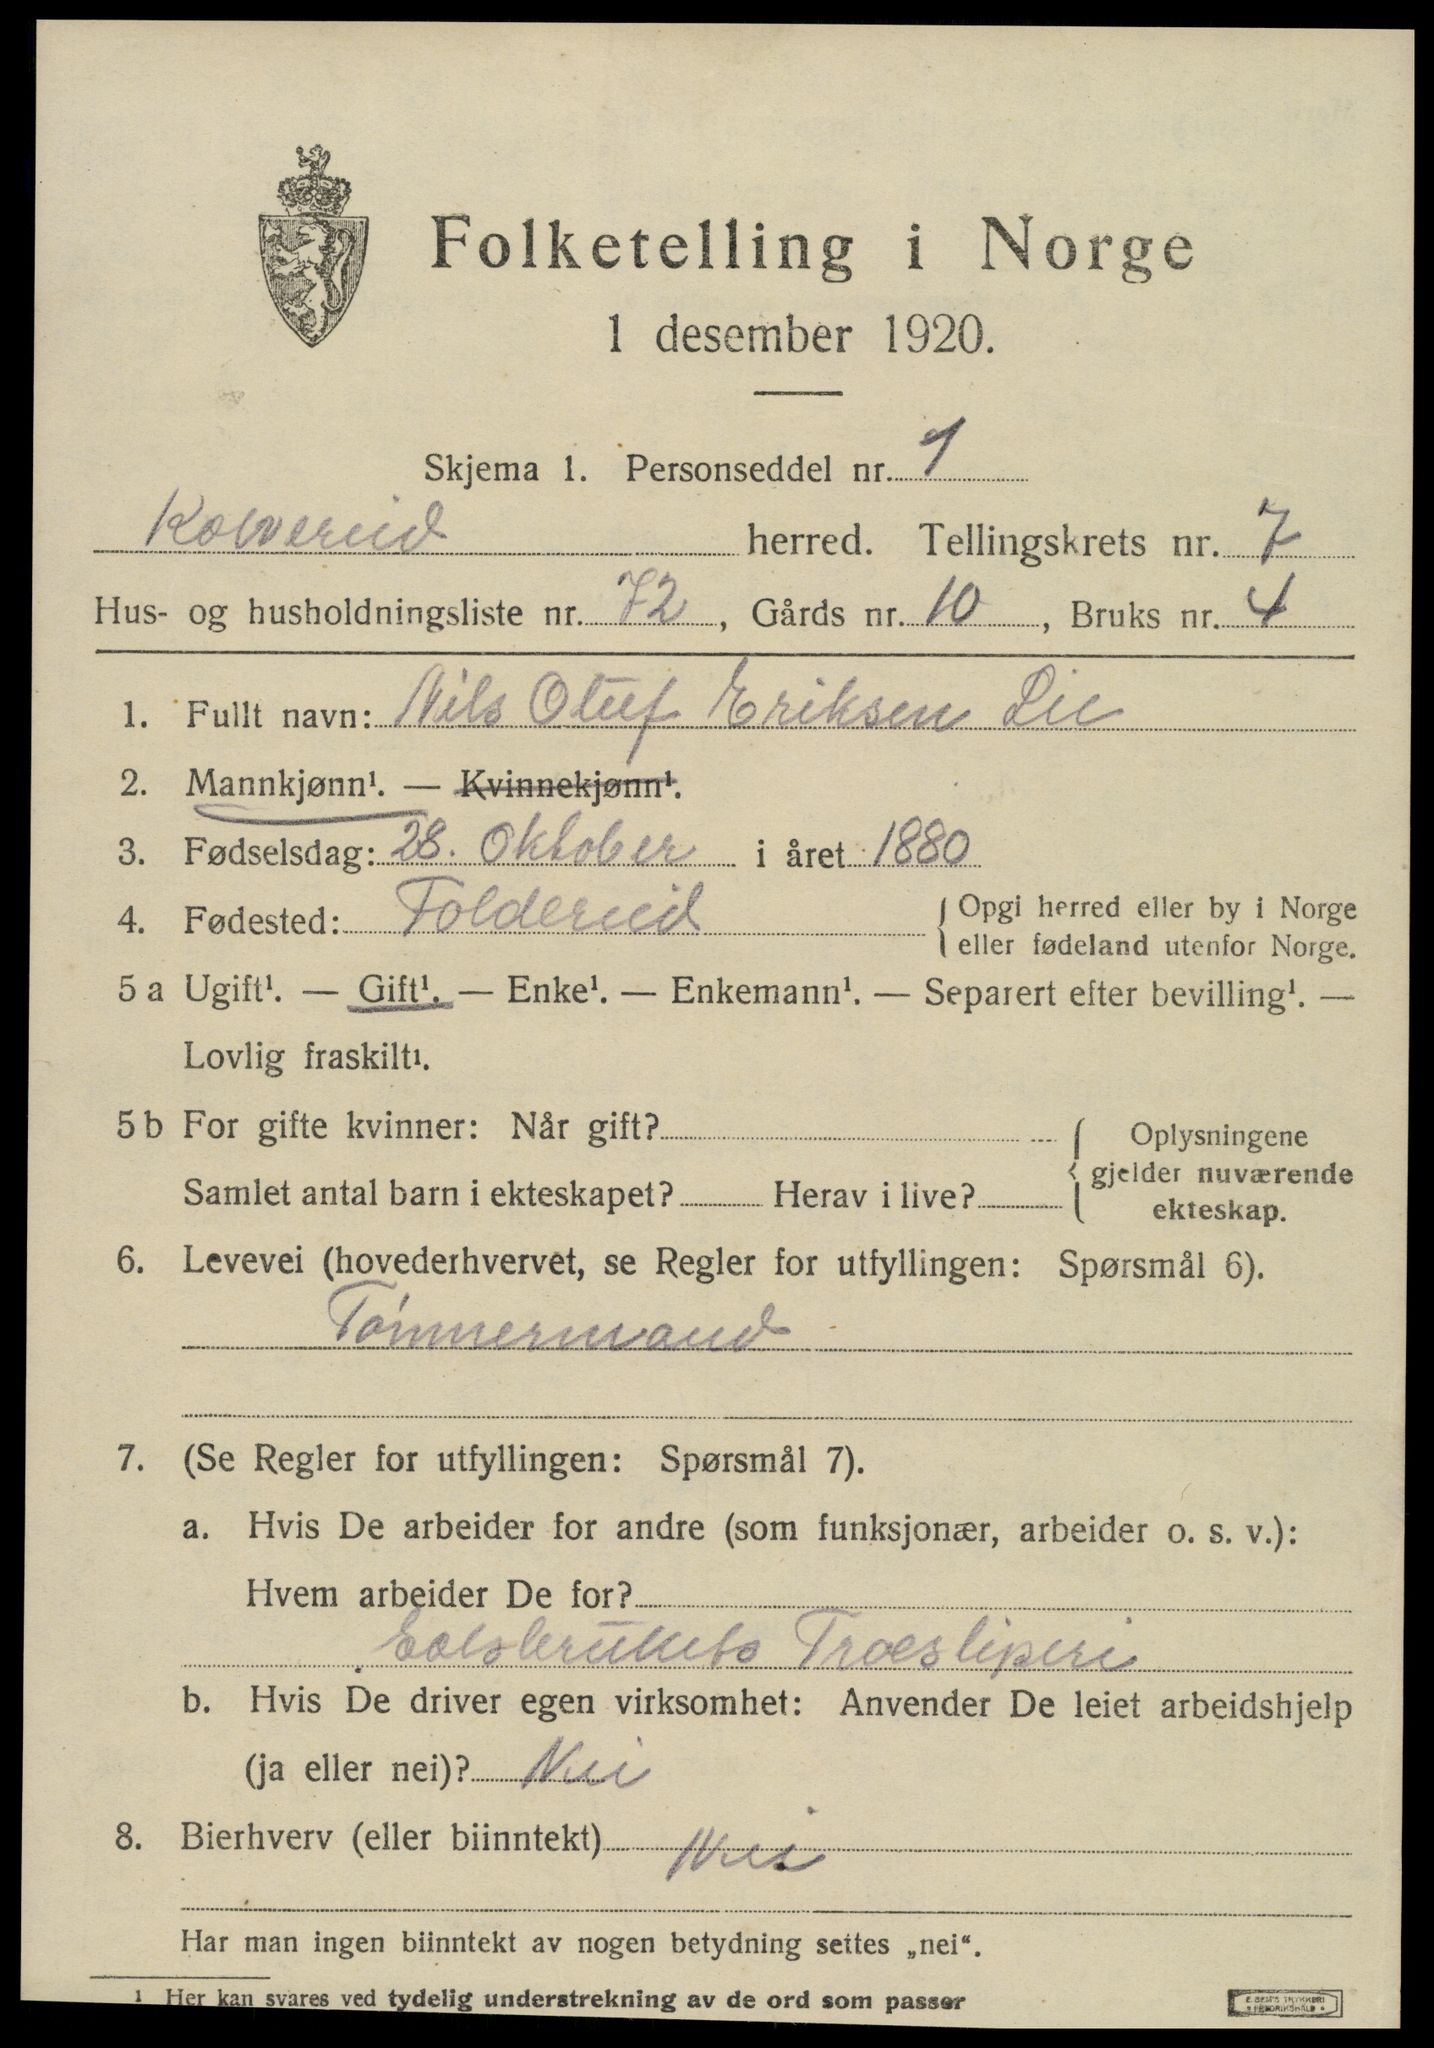 Folketelling i Norge
1 desember 1920.
Skjema 1. Personseddel nr. 1
Kolvereid herred. Tellingskrets nr. 7
Hus- og husholdningsliste nr. 72, Gårds nr. 10, Bruks nr. 4
1. Fullt navn: Nils Oluf Eriksen Lie
2. Mannkjønn¹. — Kvinnekjønn¹.
3. Fødselsdag: 28. Oktober i året 1880
4. Fødested: Foldereid { Opgi herred eller by i Norge
eller fødeland utenfor Norge.
5 a Ugift¹. — Gift¹. — Enke¹. — Enkemann¹. — Separert efter bevilling¹. —
Lovlig fraskilt¹.
5 b For gifte kvinner: Når gift? { Oplysningene
gjelder nuværende
Samlet antal barn i ekteskapet? Herav i live?
ekteskap.
6. Levevei (hovederhvervet, se Regler for utfyllingen: Spørsmål 6).
Tømmermand
7. (Se Regler for utfyllingen: Spørsmål 7).
a. Hvis De arbeider for andre (som funksjonær, arbeider o. s. v.):
Hvem arbeider De for?
Træsliperi
b. Hvis De driver egen virksomhet: Anvender De leiet arbeidshjelp
(ja eller nei)? Nei
8. Bierhverv (eller biinntekt) Nei
Har man ingen biinntekt av nogen betydning settes „nei“.
¹ Her kan svares ved tydelig understrekning av de ord som passer
E. SEM'S TRYKKERI
FREDRIKSHALD